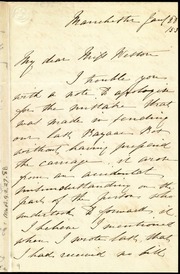 Manchester Jany 8th
My dear Miss Weston
I trouble you
with a note to apologize
for the mistake that
was made in sending
our last Bazaar Box
without having prepaid
the carriage - it arose
from an accidental
misunderstanding on the
part of the person who
undertook to forward it
I believe I mentioned
when I wrote last, that
I had received no bill